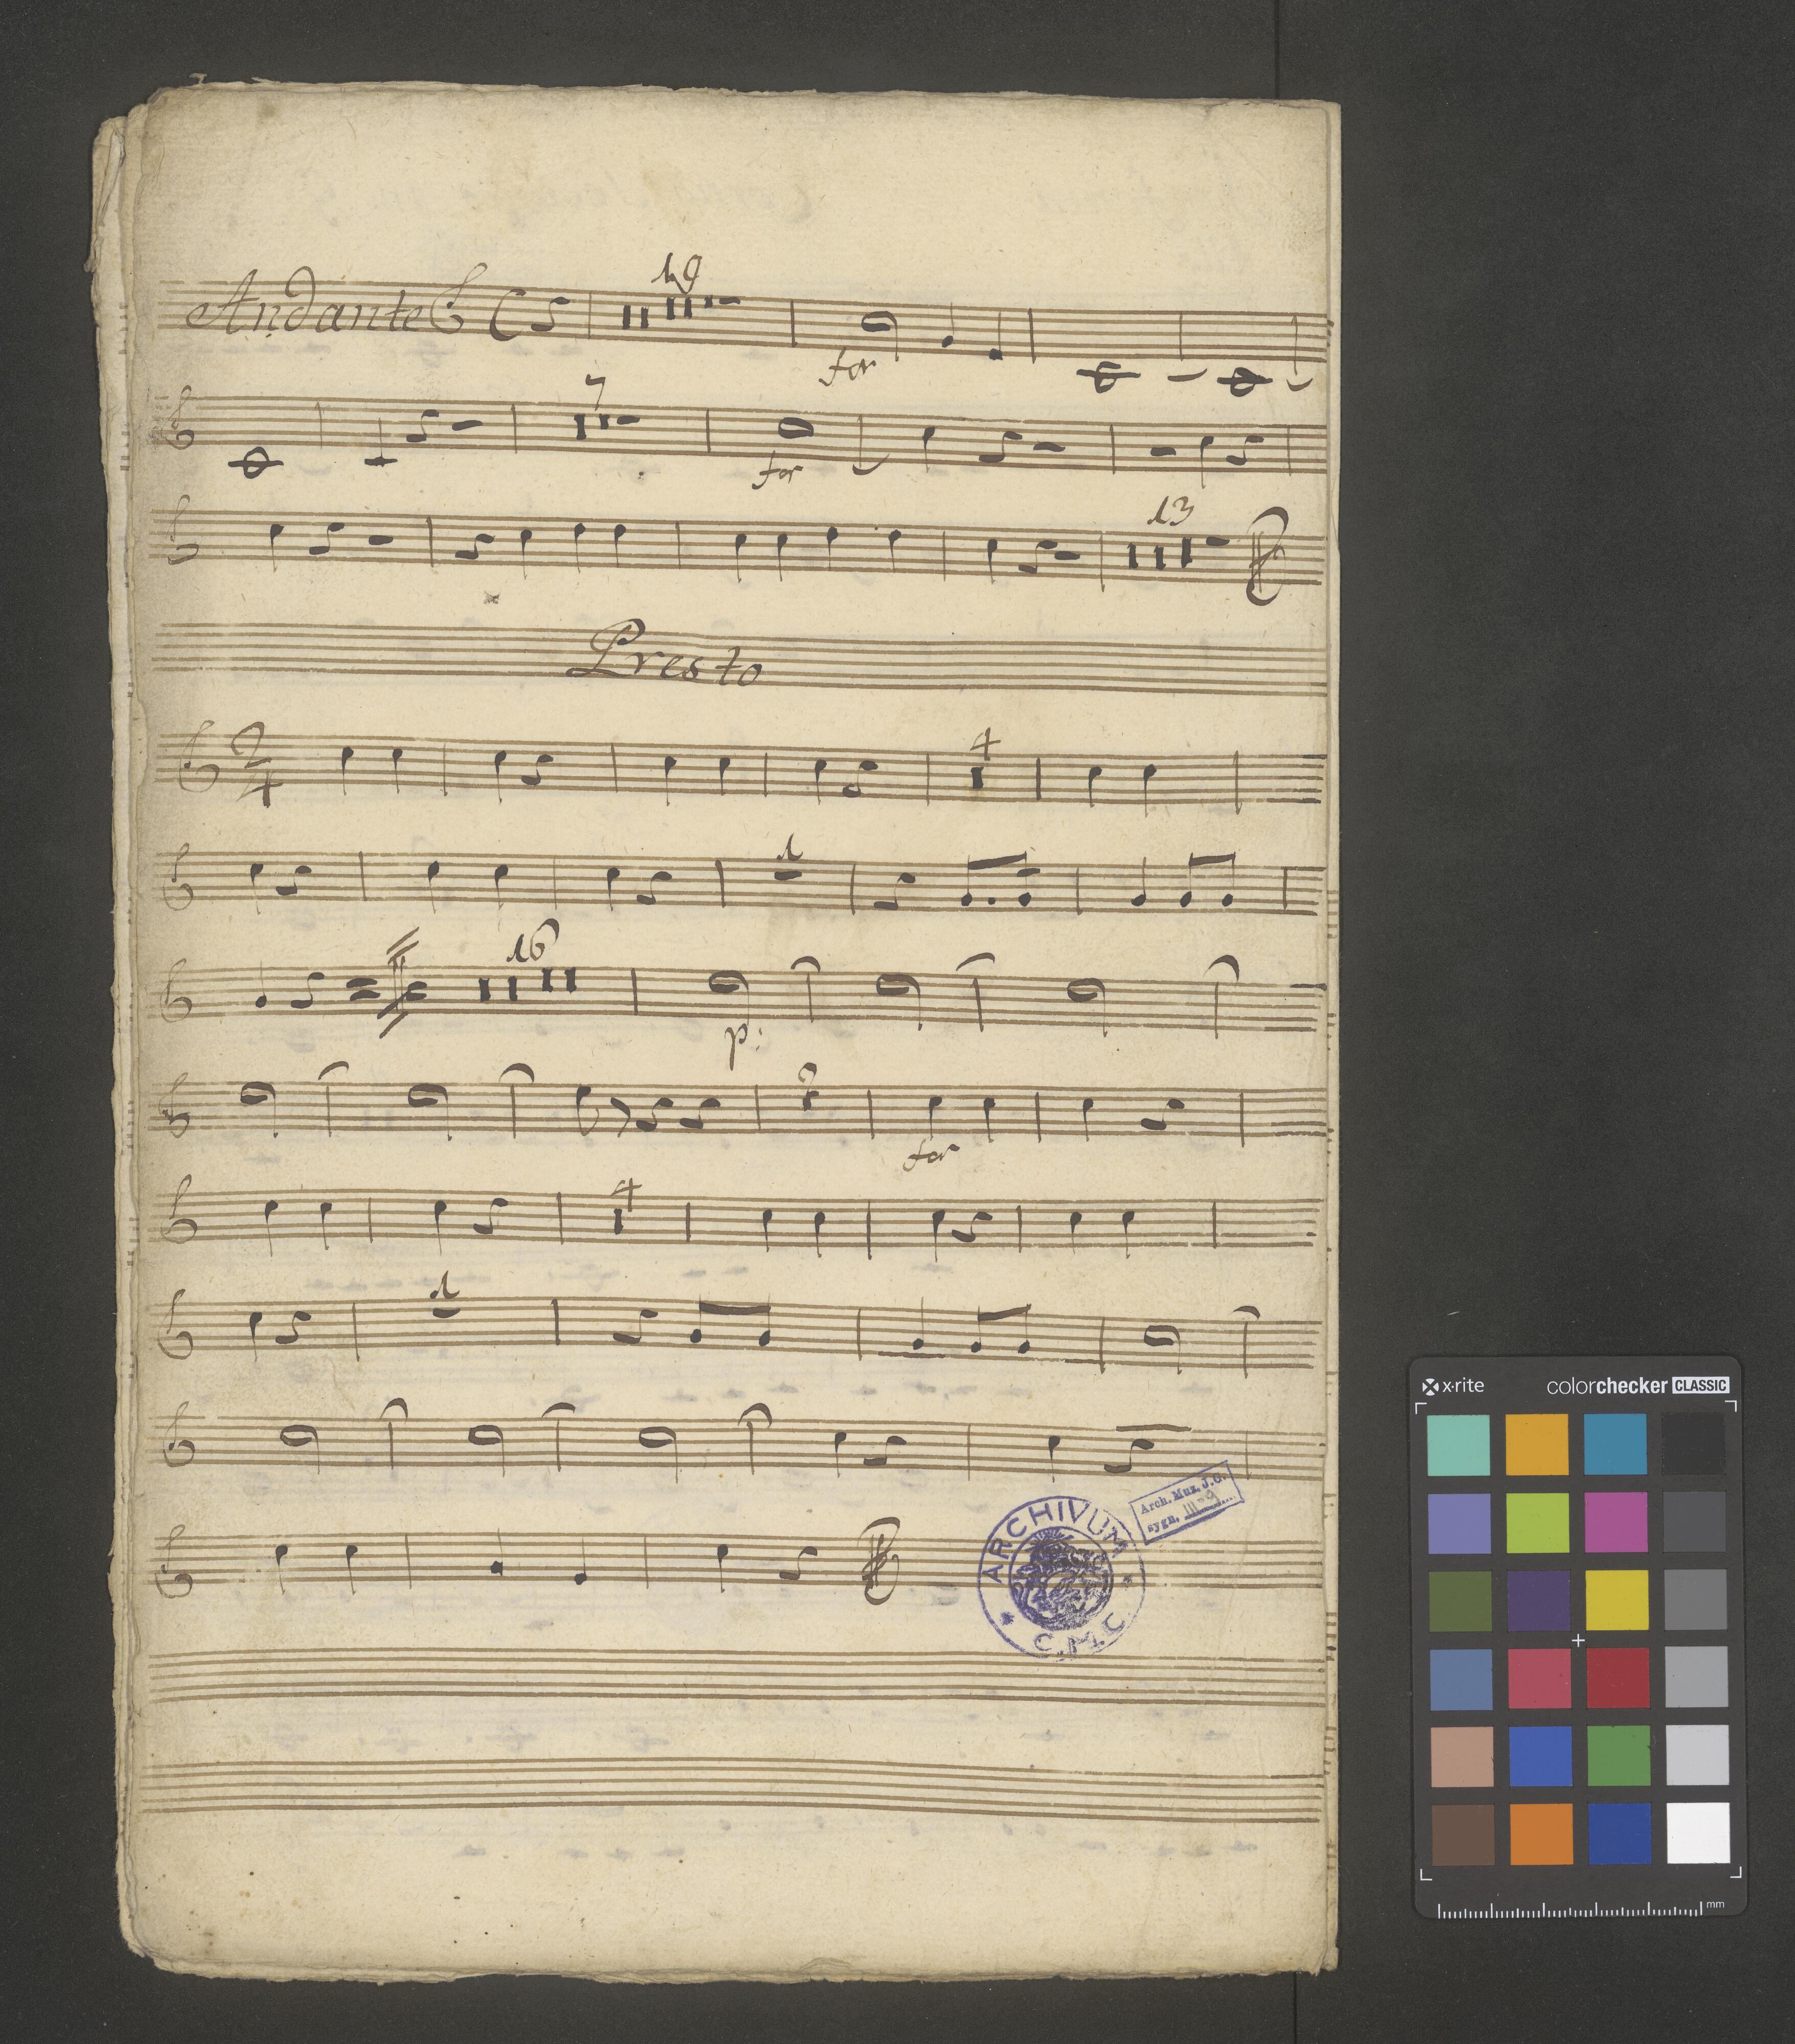 19
Andante C
for
7
for
13
Presto
2/4
4
1
16
p:
2
for
4
1
Arch. Muz. J.G.
sygn. III-9
ARCHIVUM
C.M.C.
x-rite colorchecker CLASSIC
mm